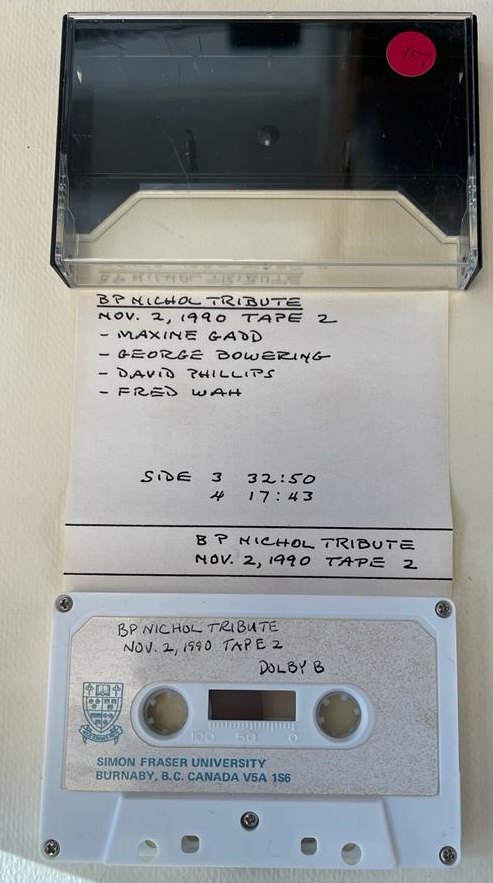 157
BP NICHOL TRIBUTE
NOV. 2, 1990 TAPE 2
- MAXINE GADD
- GEORGE BOWERING
- DAVID PHILLIPS
- FRED WAH
SIDE 3 32:50
4 17:43
BP NICHOL TRIBUTE
NOV. 2, 1990 TAPE 2
BP NICHOL TRIBUTE
NOV. 2, 1990 TAPE 2
DOLBY B
100 50 0
SIMON FRASER UNIVERSITY
BURNABY, B.C. CANADA V5A 1S6